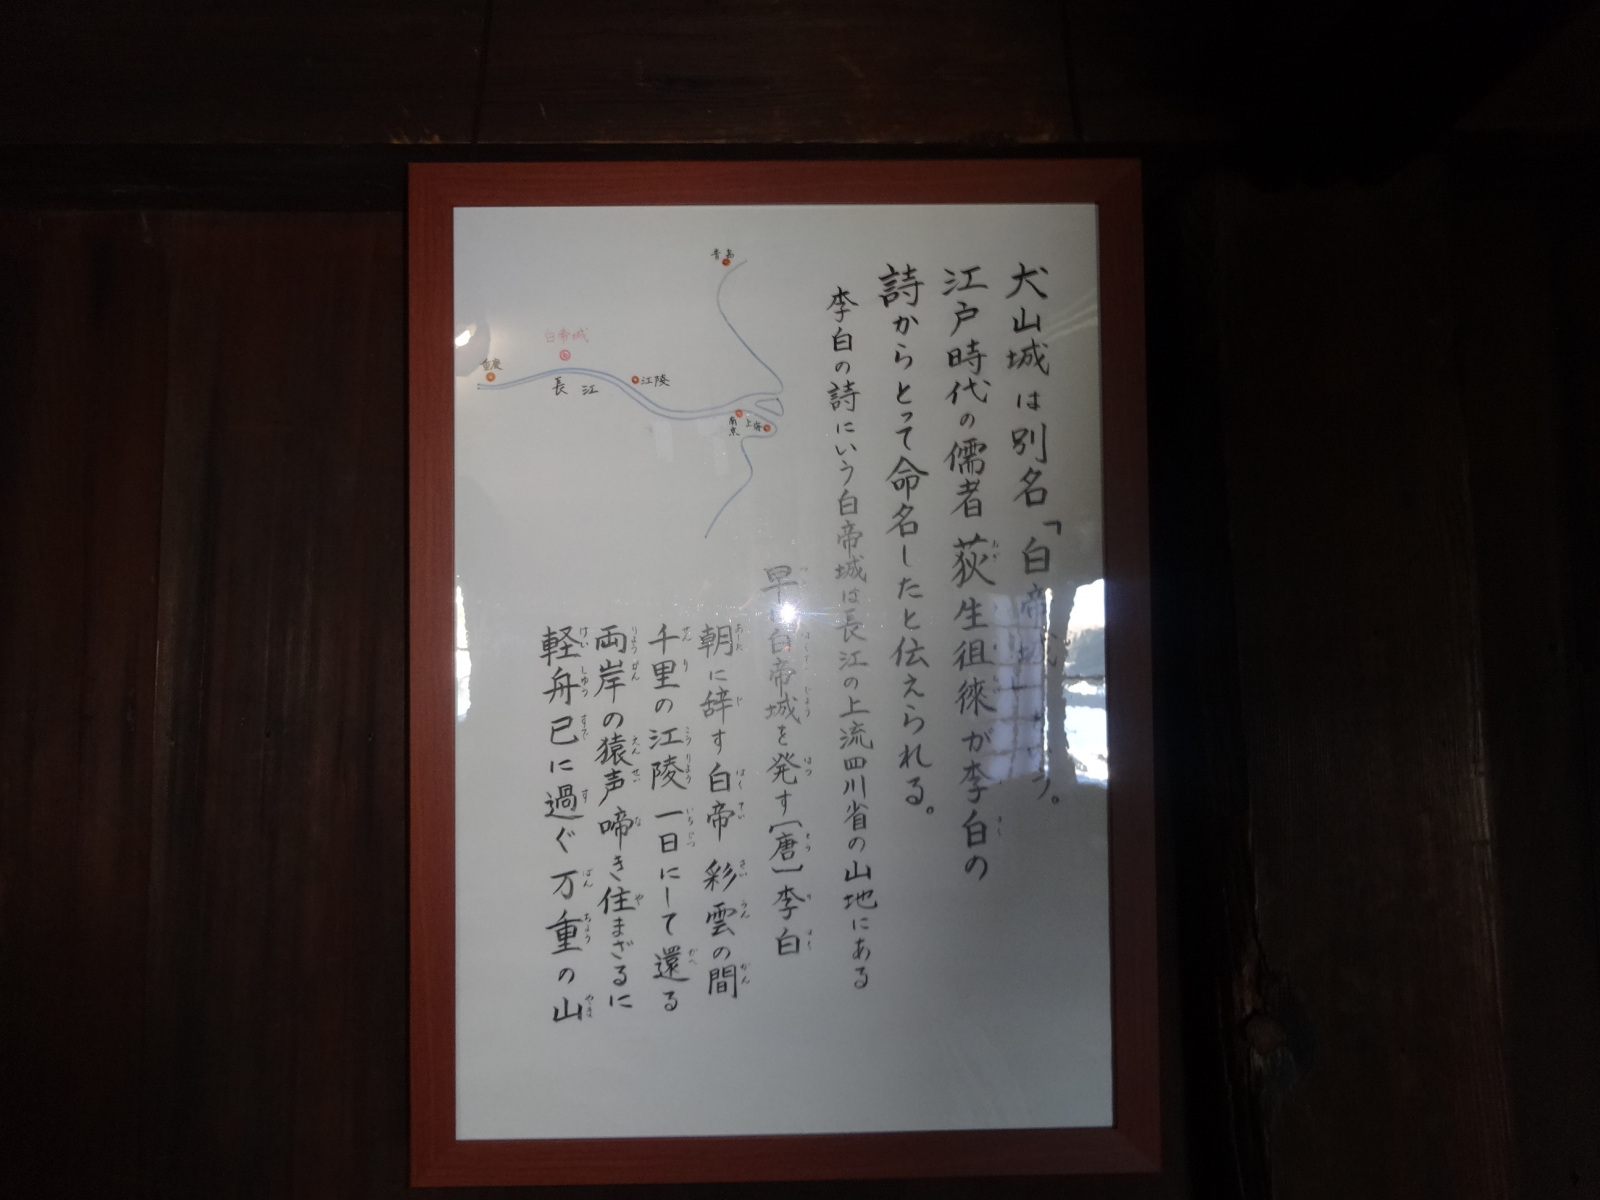 犬山城は別名「白帝城」
江戸時代の儒者荻生徂徠が李白の
詩からとって命名したと伝えられる。
李白の詩にいう白帝城は長江の上流四川省の山地にある
早に白帝城を発す[唐]李白
朝に辞す白帝彩雲の間
千里の江陵一日にして還る
両岸の猿声啼き住まざるに
軽舟已に過ぐ万重の山
青島
白帝城
重慶
長江
江陵
南京
上海